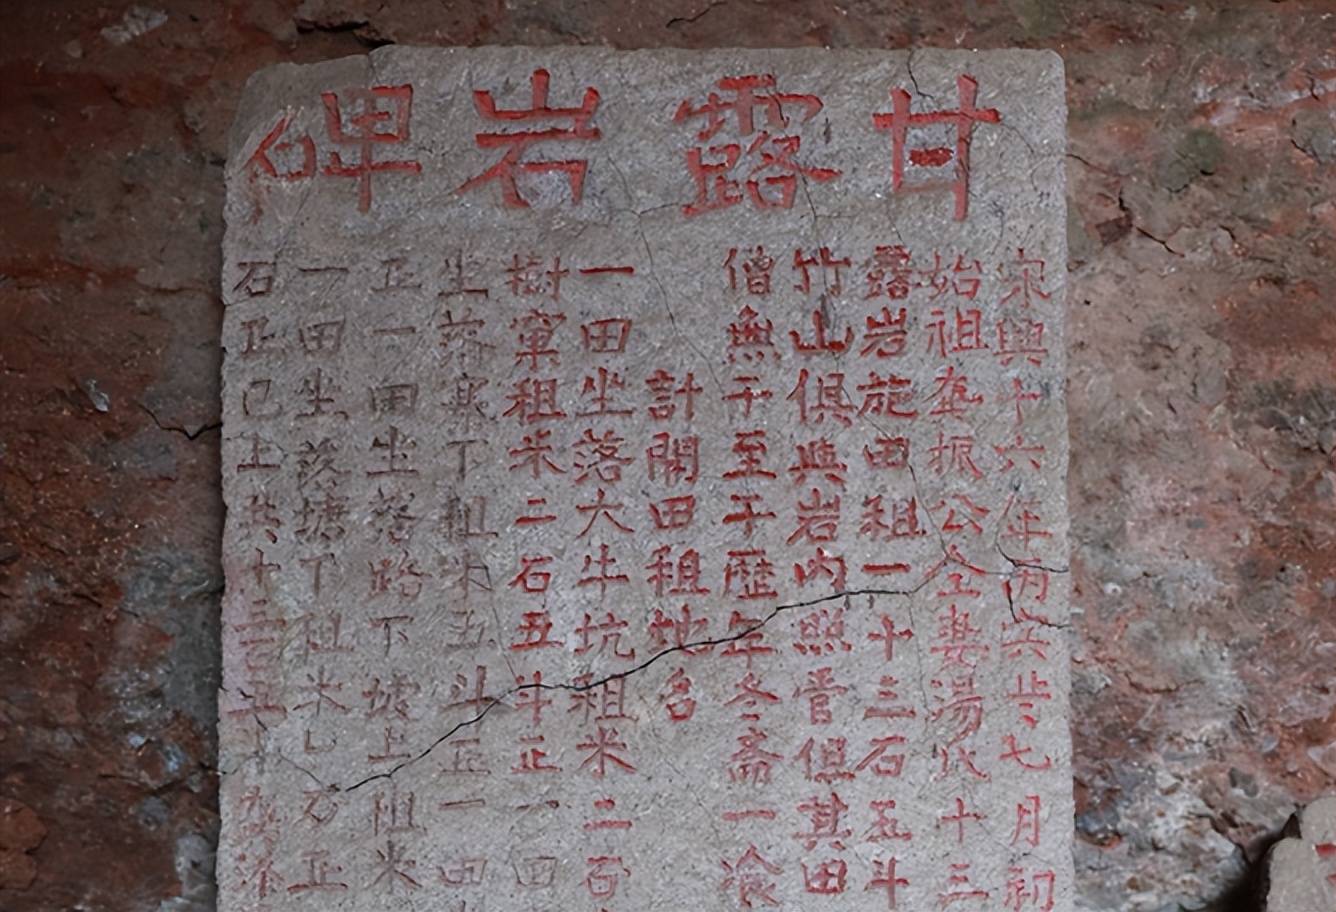 甘露岩碑
宋興十六年丙六岁七月初
始祖龚振公仝妻湯氏十三
露岩施田租一十三石五斗
竹山俱與岩内照管但其田
僧無干至于歷年冬齋一飡
計開田租地名
一田坐落大牛坑租米二石
樹窠租米二石五斗正一田
坐落寮下租米五斗正一田
正一田坐落路下墘上租米
一田坐落塘下租米七石正
石正已上共十三石五斗